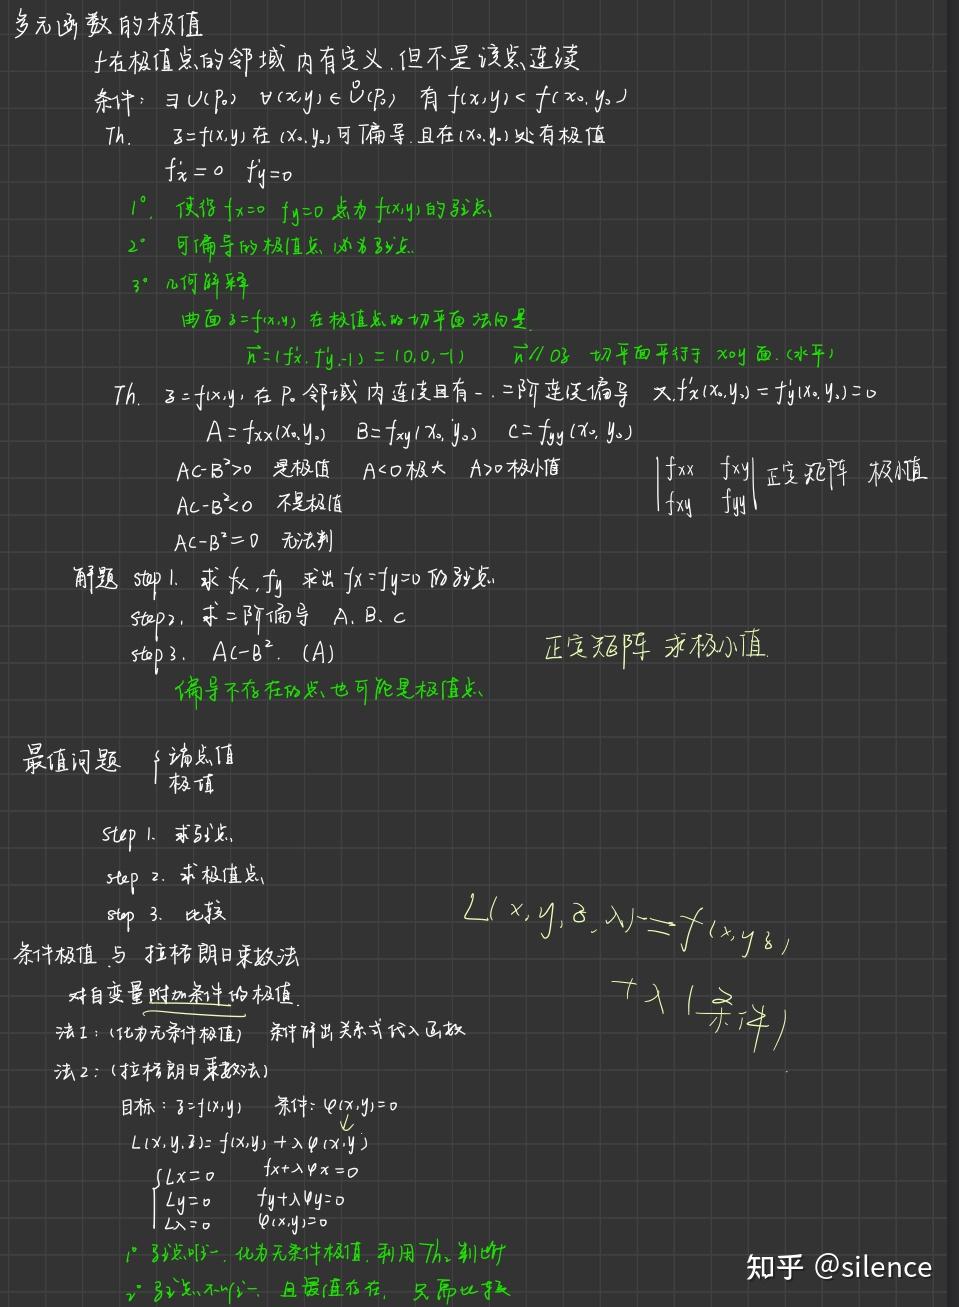 多元函数的极值
f在极值点的邻域内有定义.但不是该点连续
条件: ∃U(P₀) ∀(x,y)∈Ů(P₀) 有 f(x,y)<f(x₀,y₀)
Th. z=f(x,y)在(x₀,y₀)可偏导.且在(x₀,y₀)处有极值
f'x=0 f'y=0
1°. 使得 fx=0 fy=0 点为f(x,y)的驻点
2° 可偏导的极值点必为驻点.
3° 几何解释
曲面z=f(x,y)在极值点的切平面法向是.
n⃗=(f'x,f'y,-1)=(0,0,-1) n⃗∥oz 切平面平行于xoy面.(水平)
Th. z=f(x,y)在P₀邻域内连续且有一.二阶连续偏导 又.f'x(x₀,y₀)=f'y(x₀,y₀)=0
A=fxx(x₀,y₀) B=fxy(x₀,y₀) C=fyy(x₀,y₀)
AC-B²>0 是极值 A<0极大 A>0极小值
|fxx fxy| 正定矩阵 极小值
|fxy fyy|
AC-B²<0 不是极值
AC-B²=0 无法判
解题 step 1. 求fx,fy 求出fx=fy=0的驻点
step2. 求二阶偏导 A.B.C
step 3. AC-B². (A)
正定矩阵 求极小值.
偏导不存在的点也可能是极值点
最值问题 { 端点值
极值
step 1. 求驻点
step 2. 求极值点
step 3. 比较
L(x,y,z,λ)=f(x,y,z)
+λ(条件)
条件极值与拉格朗日乘数法
对自变量附加条件的极值.
法1:(化为无条件极值) 条件解出关系式代入函数
法2:(拉格朗日乘数法)
目标:z=f(x,y) 条件:φ(x,y)=0
L(x,y,z)=f(x,y)+λφ(x,y)
{ Lx=0 fx+λφx=0
Ly=0 fy+λφy=0
Lλ=0 φ(x,y)=0
1° 驻点唯一.化为无条件极值.利用Th₂判断
2° 驻点不唯一.且最值存在,只需比较
知乎 @silence